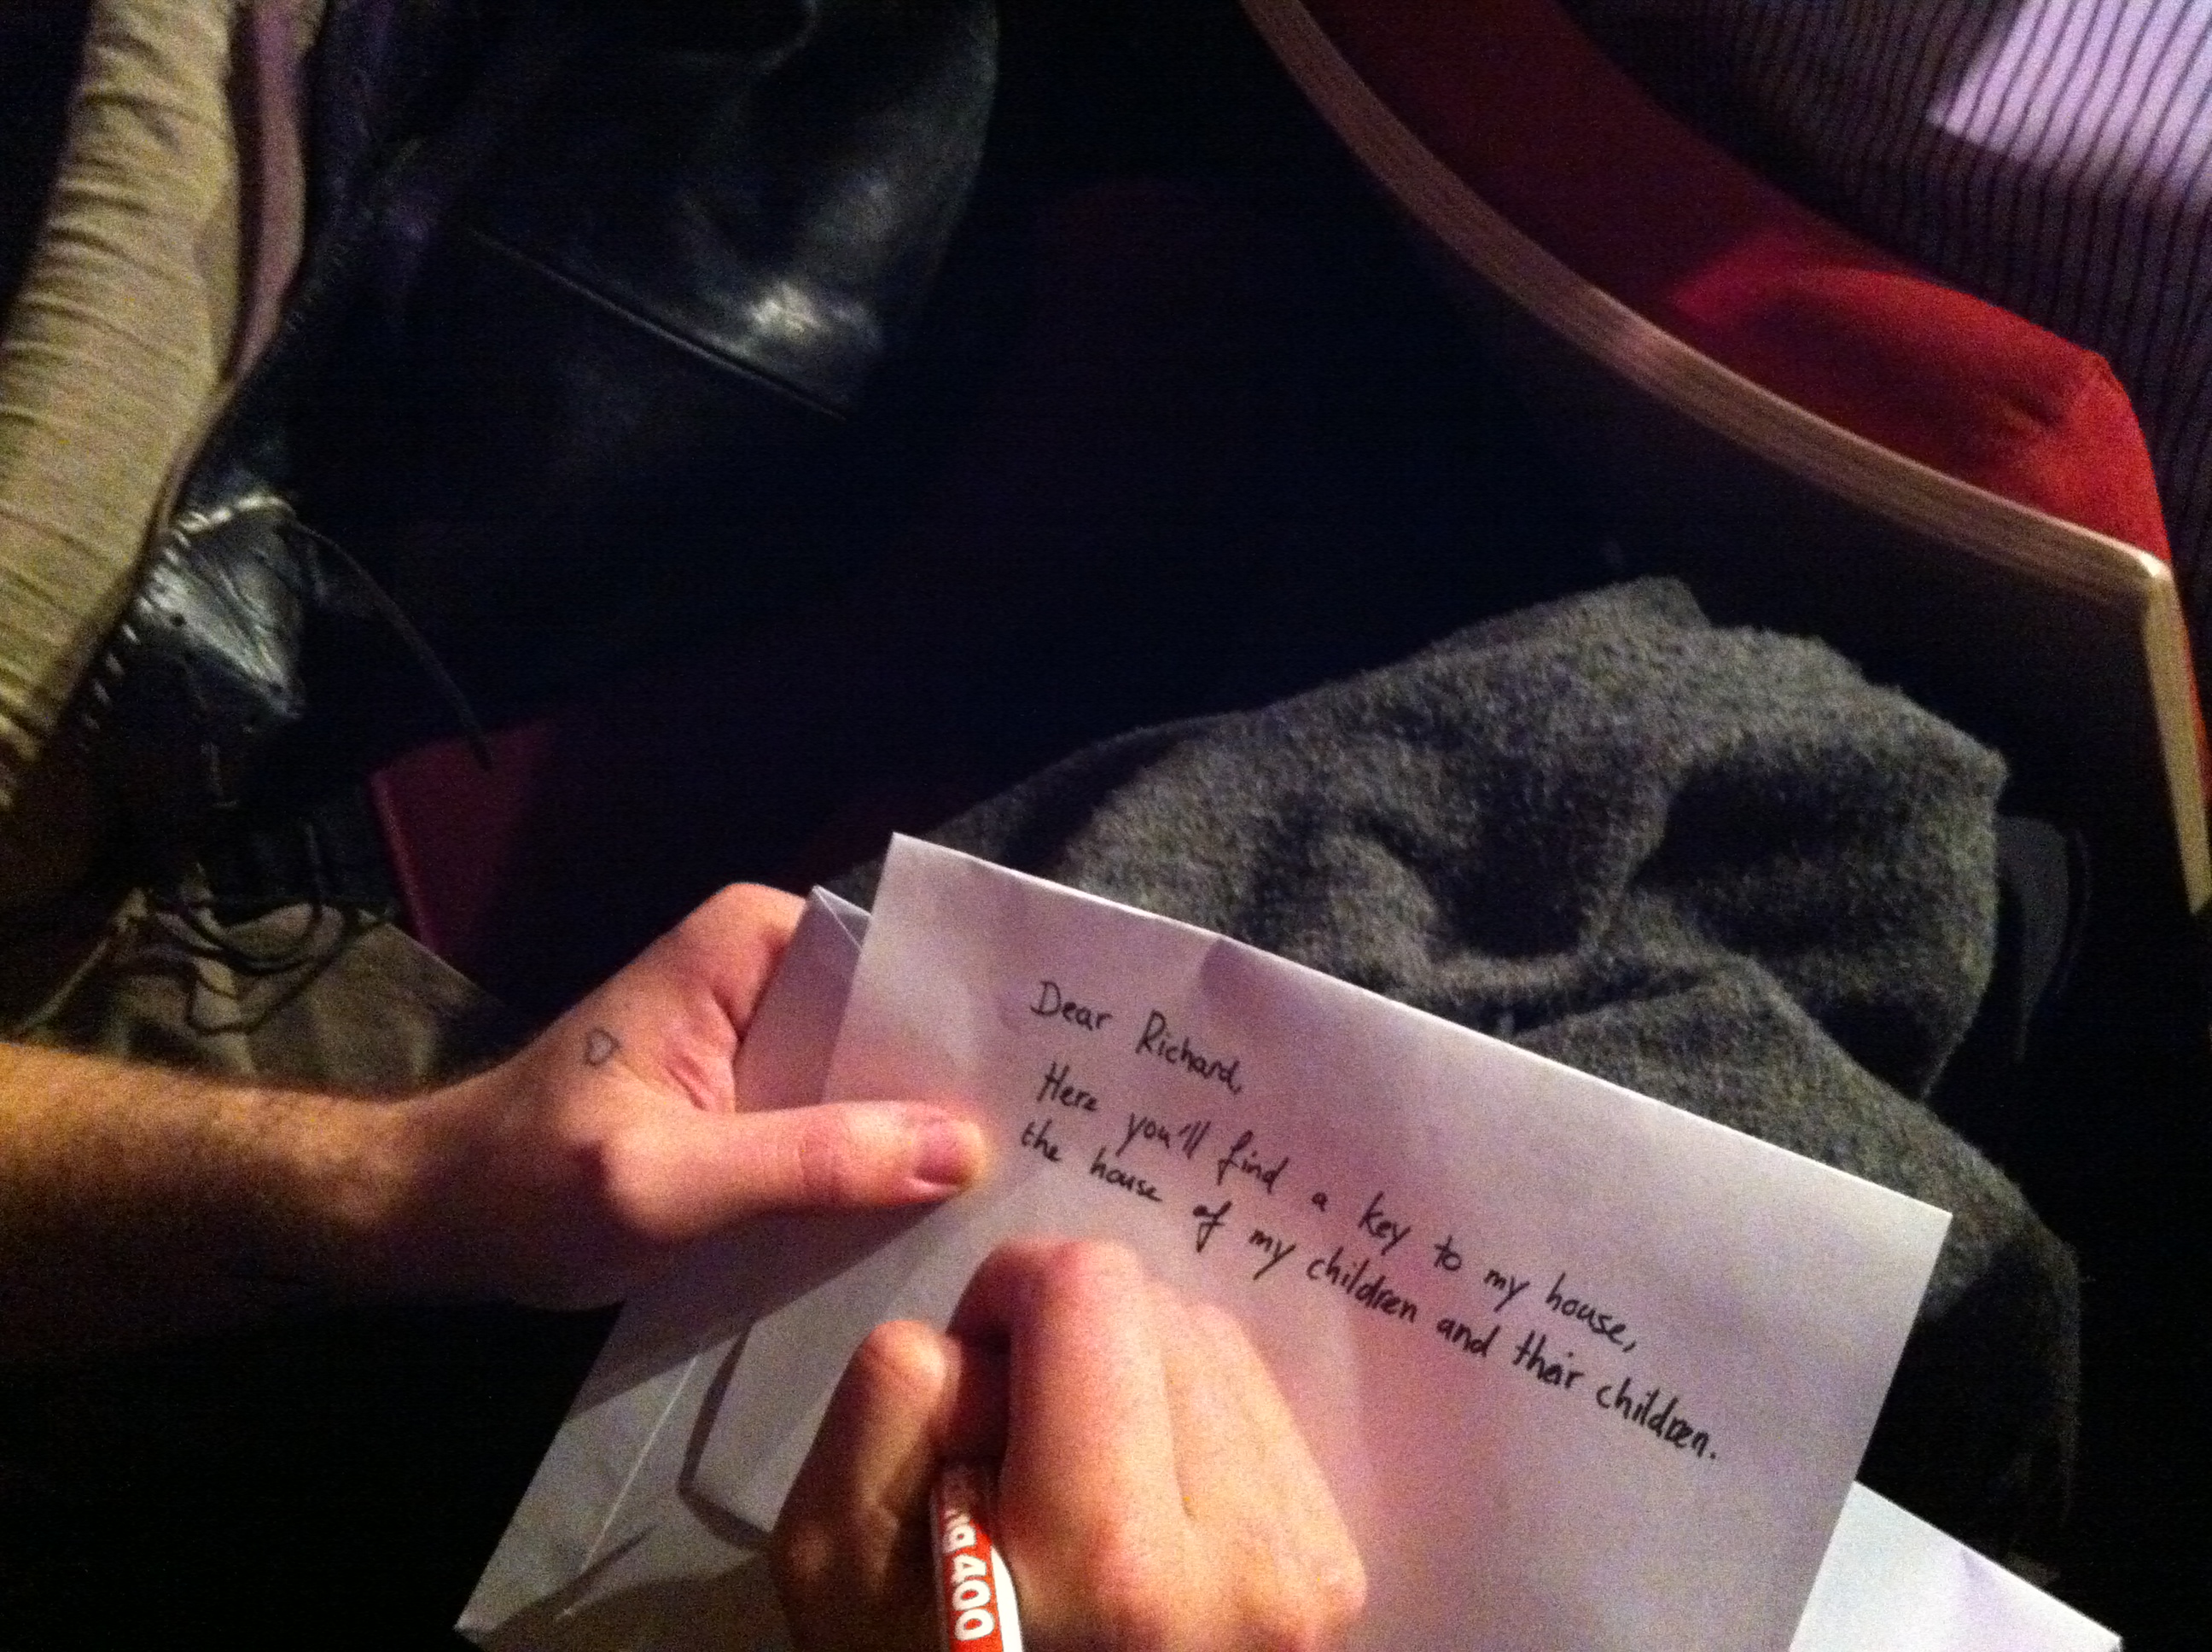 Dear Richard,
Here you'll find a key to my house,
the house of my children and their children.
400